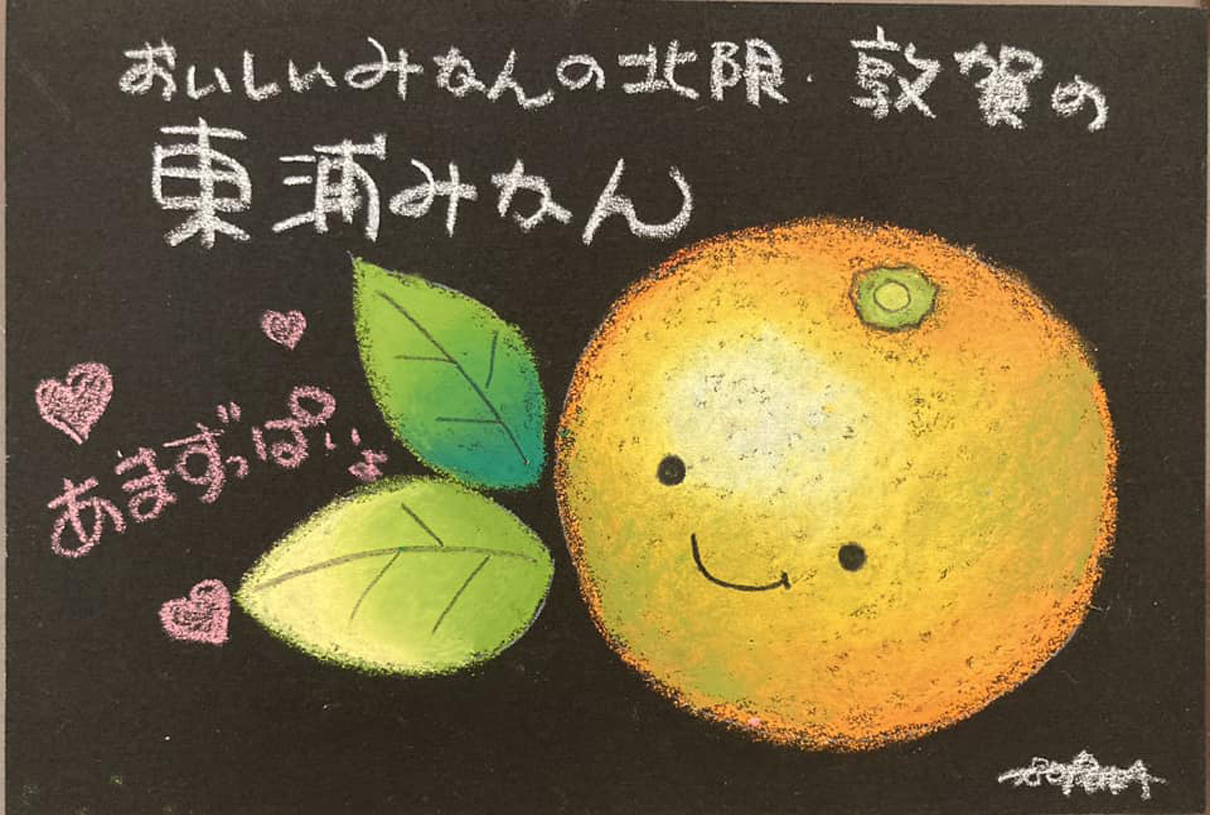 おいしいみかんの北限・敦賀の
東浦みかん
あまずっぱいよ